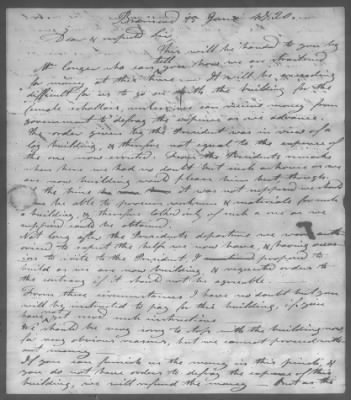 Brainerd 15 Jany 1820.
Dear & respected Sir,
This will be handed to you by
Mr who can tell you how we are straitened
for money at this time — It will be exceeding
difficult for us to go on with the building for the
female schollars, unless we can receive money from
government to defray the expences as we advance.
The order given by the President was in view of a
log building, & therefore not equal to the expence of
the one now erected. From the Presidents remarks
when here we had no doubt but such a house as we
are now building would please him best though,
at the time it was not supposed we should
be able to procure workmen & materials for such
a building, & therefore talked only of such a one as we
supposed could be obtained.
Not long after the Presidents departure we were
to expect the help we now have, & having occa-
sion to write to the President, I proposed to
build as we are now building, & requested orders to
the contrary if it should not be agreeable
From these circumstances I have no doubt but you
will be instructed to pay for this building, if you
have not recd such instructions
We should be very sorry to stop with the building now
for very obvious reasons, but we cannot proceed with-
out money
If you can furnish us the money in this pinch, &
you do not have orders to defray the expence of this
building, we will refund the money — But as the